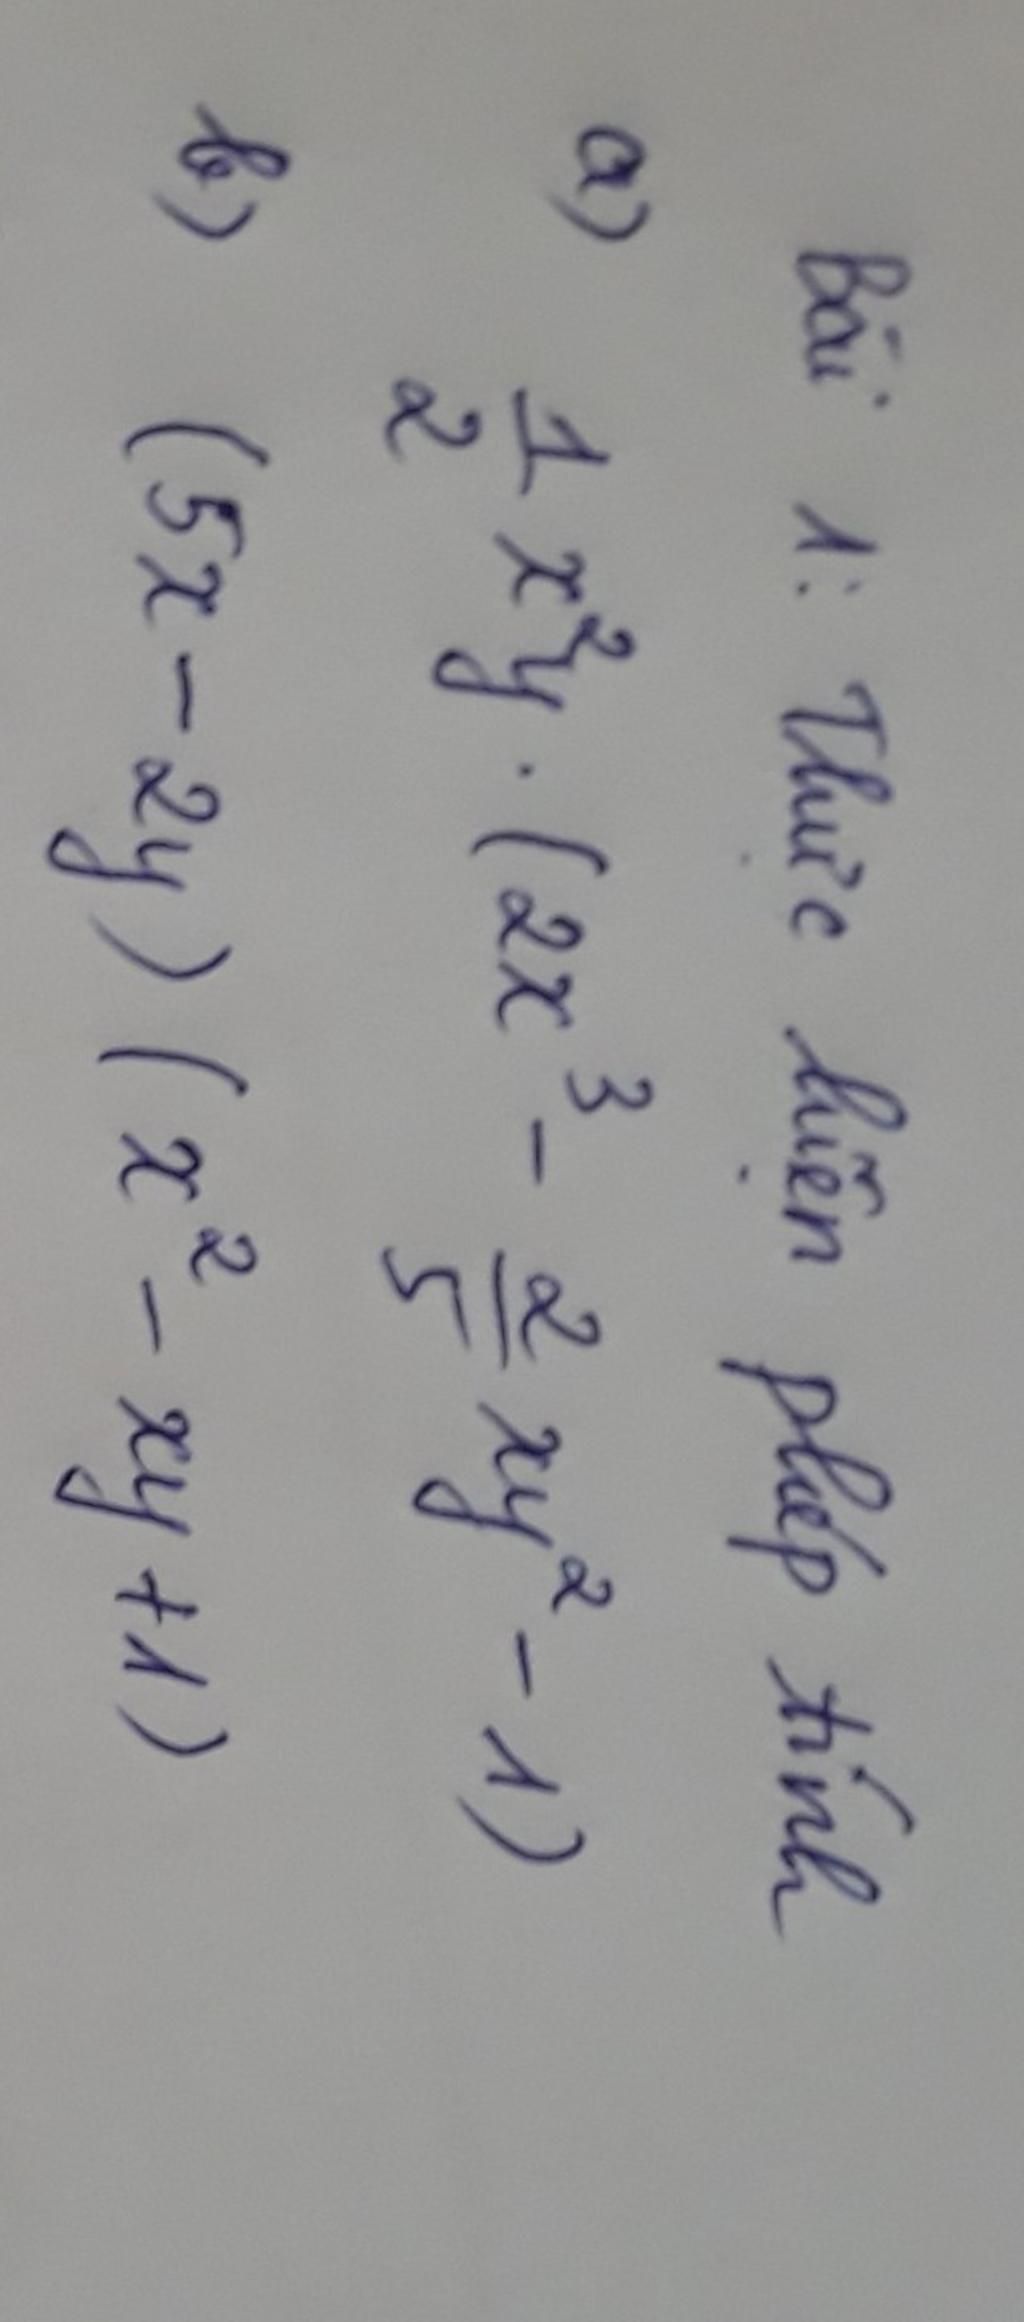 Bài 1: Thực hiện phép tính
a) \frac{1}{2} x²y . (2x³ - \frac{2}{5} xy² - 1)
b) (5x - 2y) (x² - xy + 1)